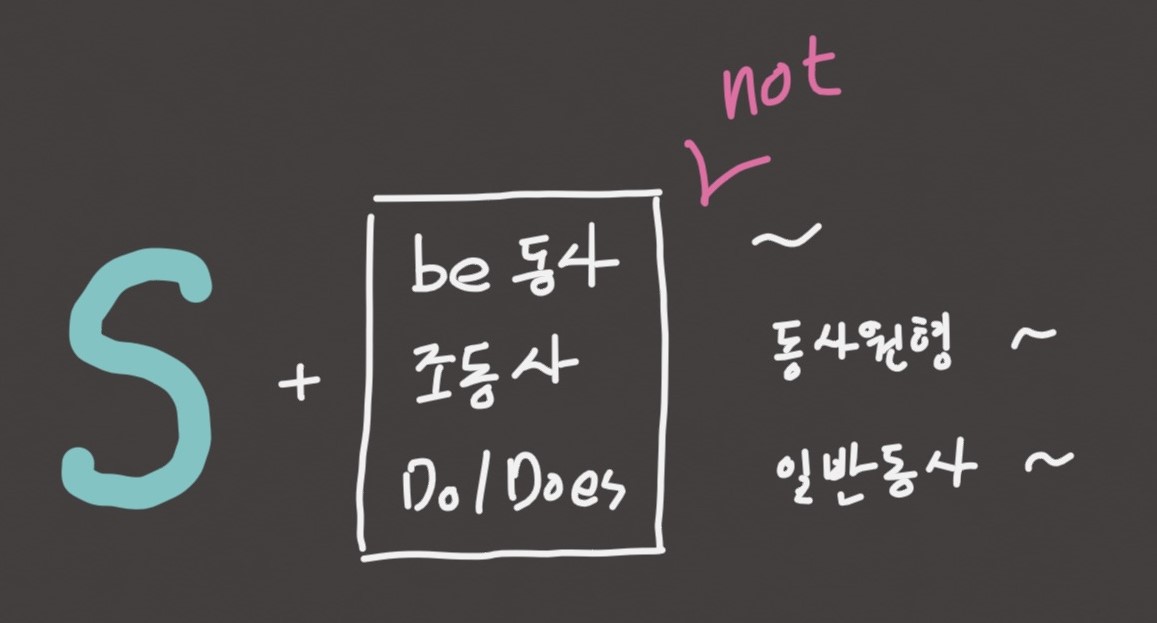 not
S + be 동사 ~
조동사 동사원형 ~
Do/Does 일반동사 ~